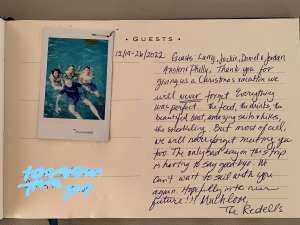 • GUESTS •
12/19-26/2022 Guests: Larry, Jackie, David & Jordan
Philly. Thank you for
giving us a Christmas vacation we
will never forget. Everything
was perfect. The food, the drinks, the
beautiful boat, amazing such hikes,
the snorkeling. But most of all,
we will never forget meeting you
too. The only bad day on this trip
is having to say goodbye. We
can't wait to sail with you
again. Hopefully in the near
future!!! Much love,
The Redell's